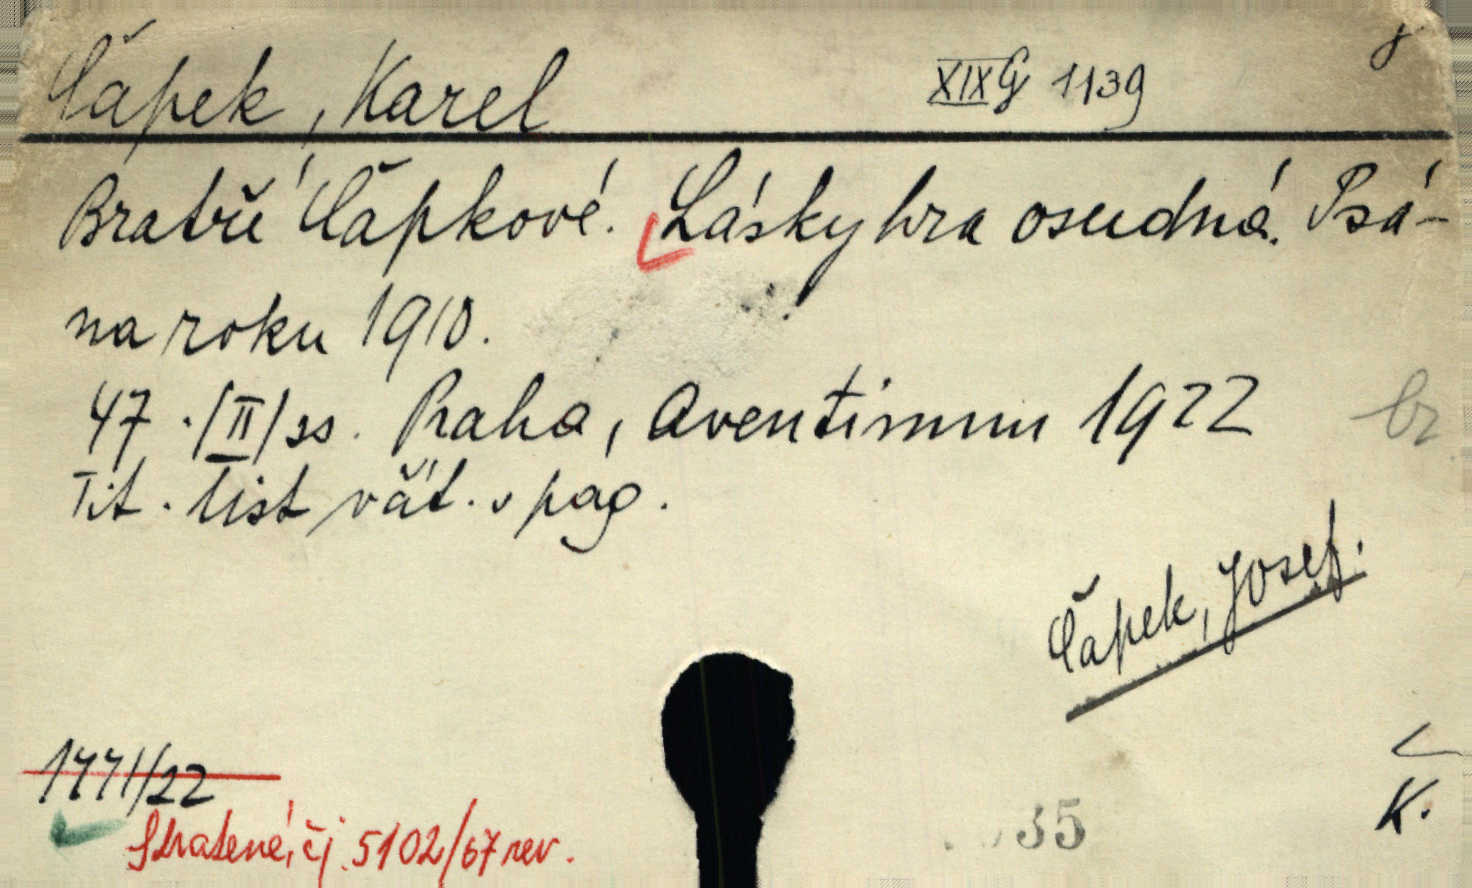 Čápek, Karel XIX G 1139
8
Bratří Čápkové. Lásky hra osudná. Psá-
na roku 1910.
47 . /II/ ss. Praha, Aventinum 1922
br
Tit. list vät. v pag.
Čápek, Josef.
1771/22
K.
Stratené, čj. 5102/67 rev.
35